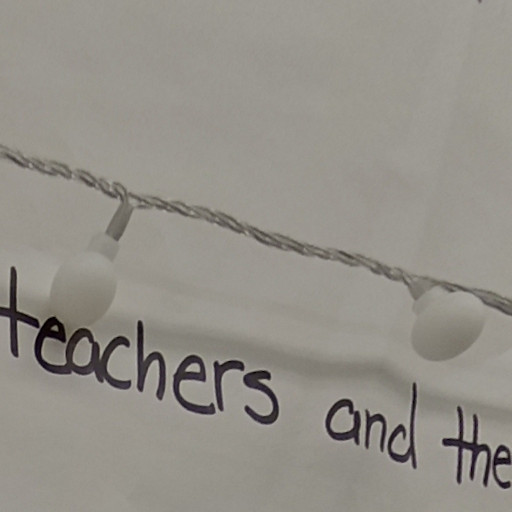 teachers and the